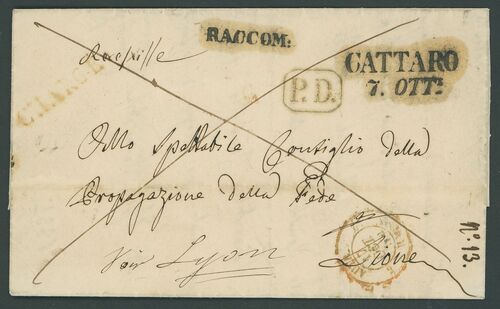 RACCOM:
CATTARO
7. OTT:
P.D.
CHARGÉ
Allo Spettabile Consiglio della
Propagazione della Fede
a
Lyon
Lione
N.º 13.